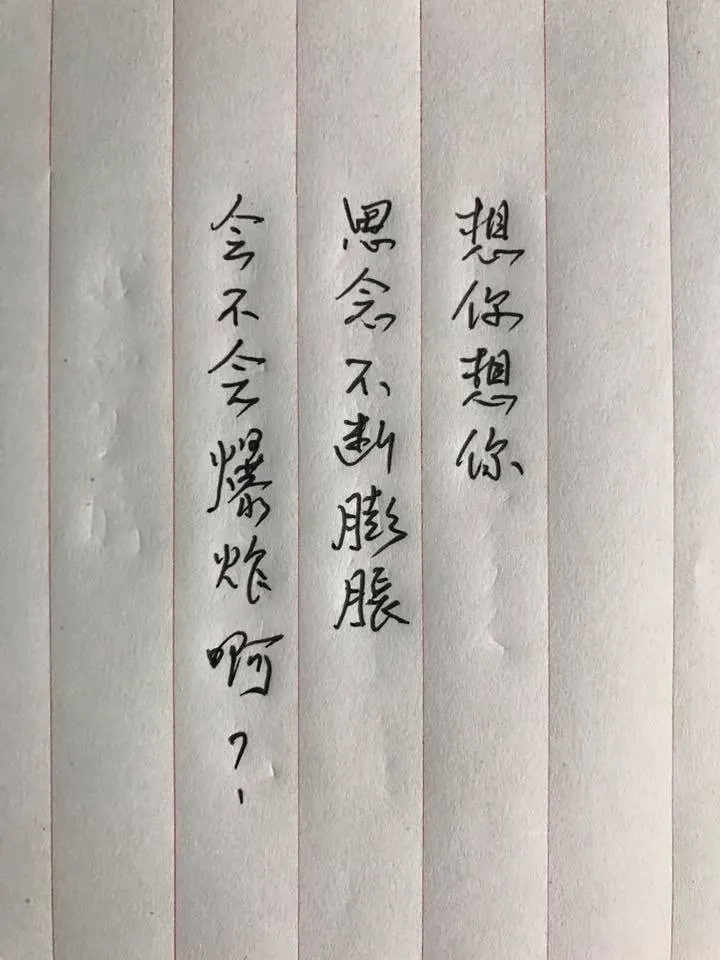 想你想你
思念不断膨脹
会不会爆炸啊？